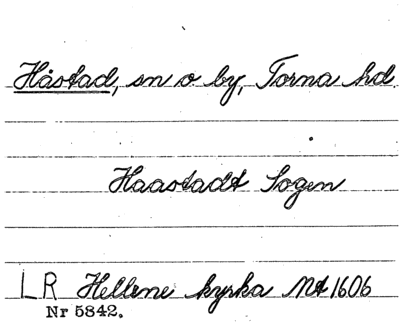 Håstad, sn o by, Torna hd.
Haastadt Sogen
LR Hellene kyrka Mt 1606
Nr 5842.